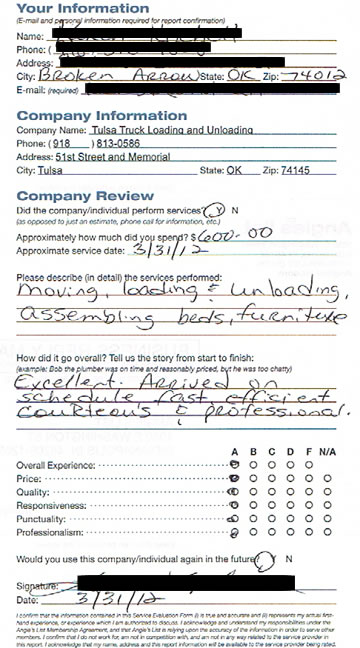 Your Information
(E-mail and personal information required for report confirmation)
Name:
Phone: (
Address:
City: Broken Arrow State: OK Zip: 74012
E-mail: (required)
Company Information
Company Name: Tulsa Truck Loading and Unloading
Phone: (918 ) 813-0586
Address: 51st Street and Memorial
City: Tulsa State: OK Zip: 74145
Company Review
Did the company/individual perform services? Y N
(as opposed to just an estimate, phone call for information, etc.)
Approximately how much did you spend? $ 600.00
Approximate service date: 3/31/12
Please describe (in detail) the services performed:
Moving, loading & unloading,
assembling beds, furniture
How did it go overall? Tell us the story from start to finish:
(example: Bob the plumber was on time and reasonably priced, but he was too chatty)
Excellent. Arrived on
schedule fast, efficient
courteous & professional.
A B C D F N/A
Overall Experience:
Price:
Quality:
Responsiveness:
Punctuality:
Professionalism:
Would you use this company/individual again in the future? Y N
Signature:
Date: 3/31/12
I confirm that the information contained in this Service Evaluation Form (i) is true and accurate and (ii) represents my actual first-
hand experience, or experience which I am authorized to discuss. I acknowledge and understand my responsibilities under the
Angie's List Membership Agreement, and that Angie's List is relying upon the accuracy of the information in order to serve other
members. I confirm that I do not work for, am not in competition with, and am not in any way related to the service provider in
this report. I acknowledge that my name, address and this report information will be available to the service provider being rated.